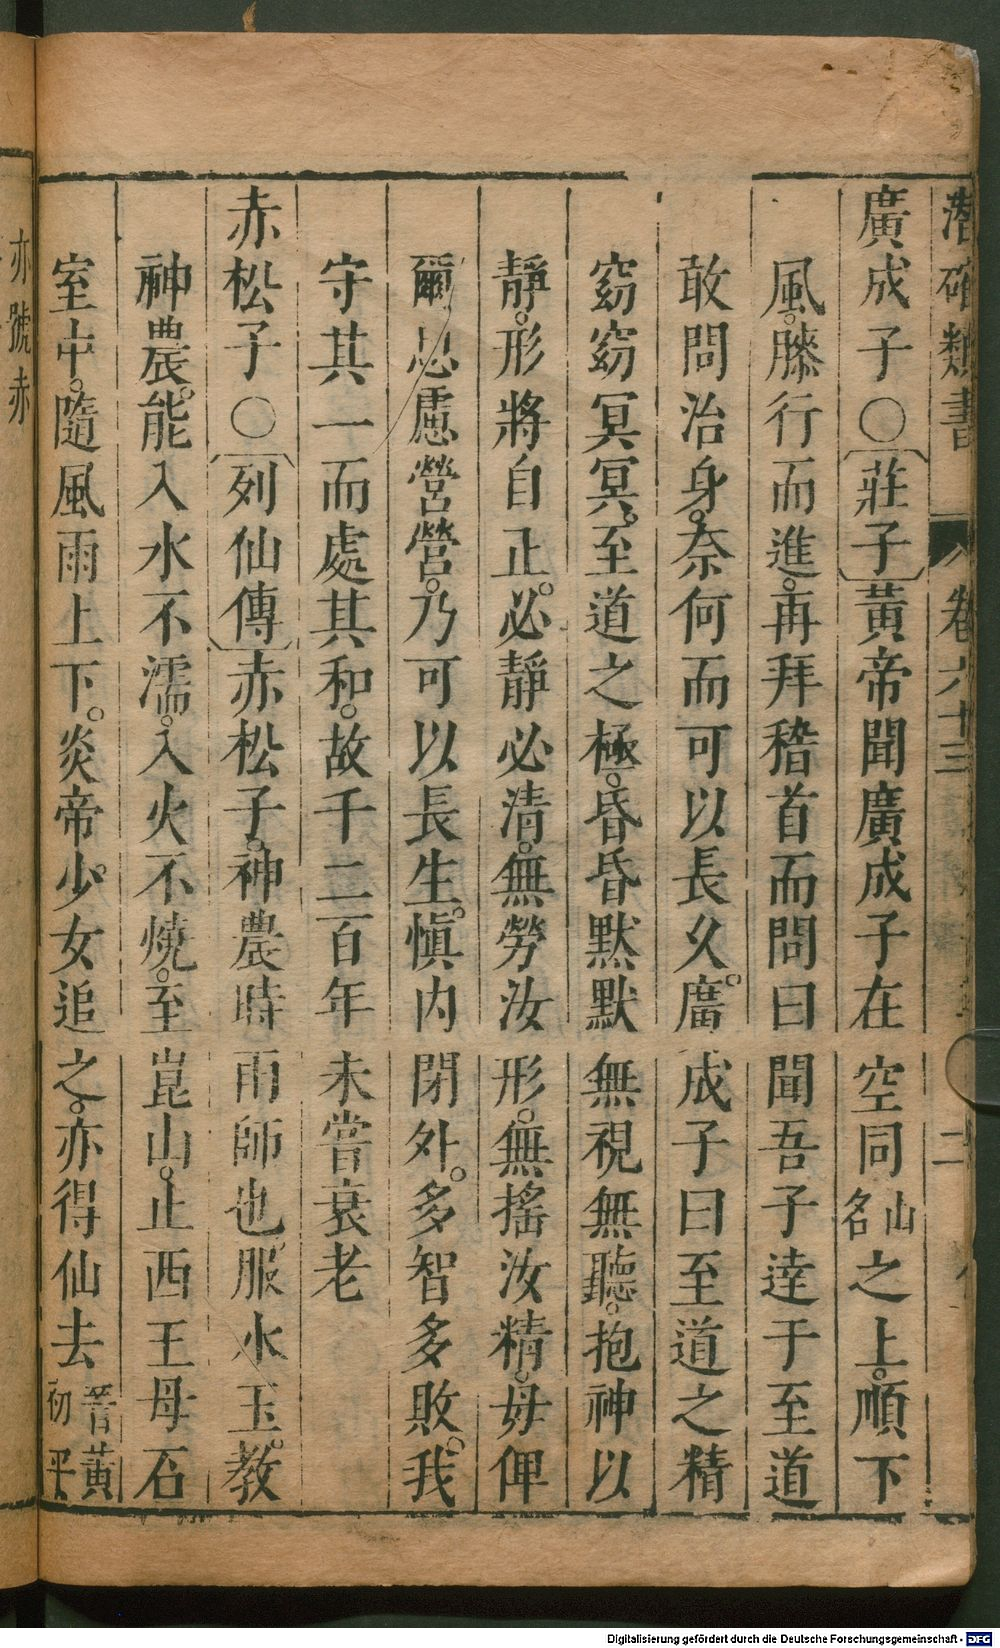 潛確類書 卷六十三 二
廣成子○〔莊子〕黃帝聞廣成子在空同山名之上。順下
風。膝行而進。再拜稽首而問曰聞吾子達于至道
敢問治身。奈何而可以長久。廣成子曰至道之精
窈窈冥冥。至道之極。昏昏默默無視無聽。抱神以
靜。形將自正。必靜必清。無勞汝形。無搖汝精。毋俾
爾思慮營營。乃可以長生。慎內閉外。多智多敗。我
守其一而處其和。故千二百年未嘗衰老
赤松子○〔列仙傳〕赤松子。神農時雨師也。服水玉。教
神農。能入水不濡。入火不燒。至崑山。止西王母石
室中。隨風雨上下。炎帝少女追之。亦得仙去晉黃初平
亦號赤
Digitalisierung gefördert durch die Deutsche Forschungsgemeinschaft - DFG